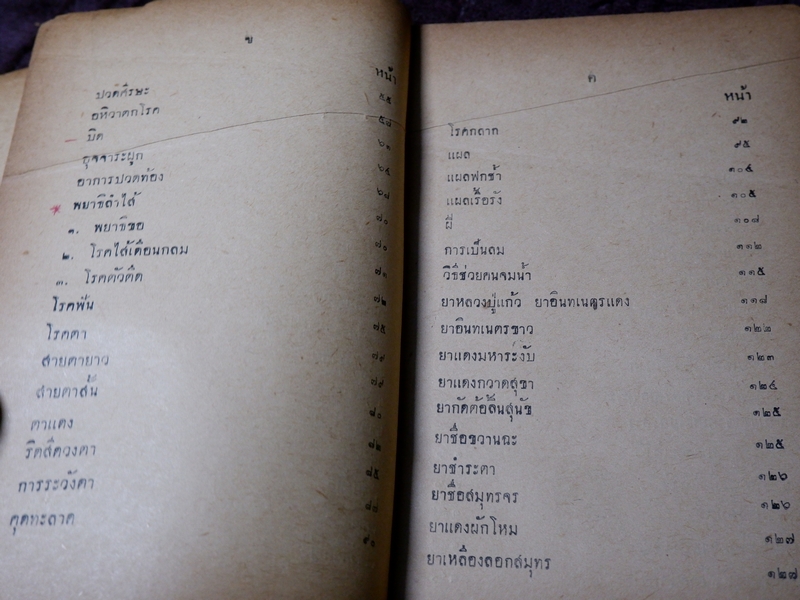 ข
หน้า
ปวดศีรษะ ๕๕
อหิวาตกโรค ๕๗
บิด ๖๑
อุจจาระผูก ๖๔
อาการปวดท้อง ๖๗
พยาธิลำไส้ ๗๐
๑. พยาธิขอ ๗๐
๒. โรคไส้เดือนกลม ๗๑
๓. โรคตัวตืด ๗๒
โรคฟัน ๗๕
โรคตา ๗๙
สายตายาว ๗๙
สายตาสั้น ๘๐
ตาแดง ๘๒
ริดสีดวงตา ๘๕
การระวังตา ๘๗
คุดทะลาด ๙๑
ค
หน้า
โรคกลาก ๙๒
แผล ๙๕
แผลฟกช้ำ ๑๐๔
แผลเรื้อรัง ๑๐๕
ฝี ๑๐๗
การเป็นลม ๑๑๒
วิธีช่วยคนจมน้ำ ๑๑๕
ยาหลวงปู่แก้ว ยาอินทเนตรแดง ๑๑๘
ยาอินทเนตรขาว ๑๒๒
ยาแดงมหาระงับ ๑๒๓
ยาแดงกวาดสุขา ๑๒๔
ยากัดต้อลิ้นสุนัข ๑๒๕
ยาชื่อขวานฉะ ๑๒๕
ยาชำระตา ๑๒๖
ยาชื่อสมุทรจร ๑๒๖
ยาแดงผักโหม ๑๒๗
ยาเหลืองลอกสมุทร ๑๒๗